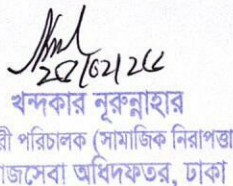 খন্দকার নূরুন্নাহার
রী পরিচালক (সামাজিক নিরাপত্তা
জসেবা অধিদফতর, ঢাকা